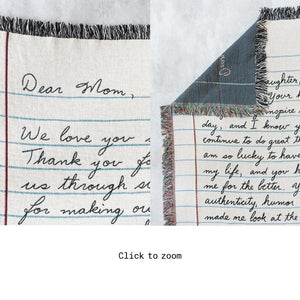 Dear Mom,
We love you
Thank you
us through
for making
daughter,
Your
inspire
day, and I know
continue to do great
am so lucky to have
my life, and you
me for the better.
authenticity, humor
made me look at the
Click to zoom